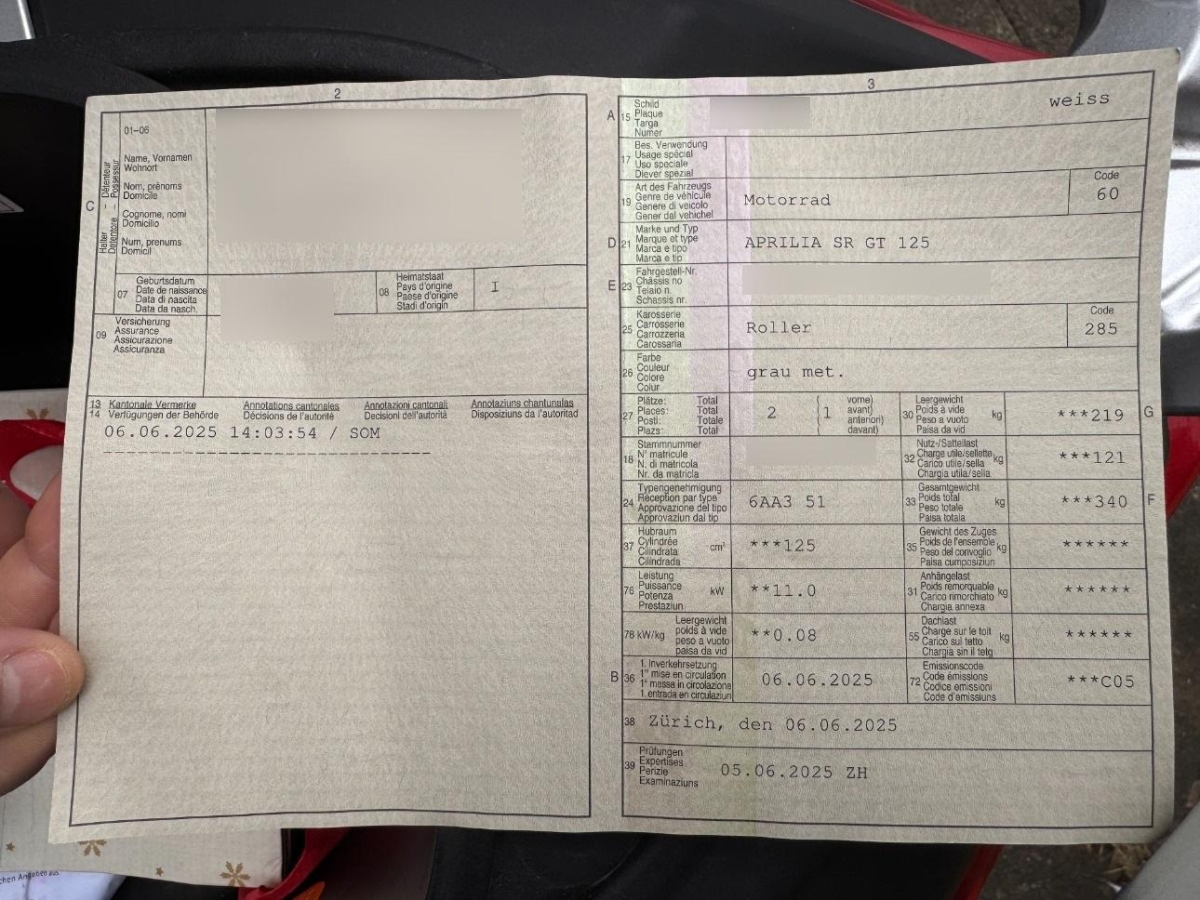 2
01-06
C
Halter - Détenteur
Detentore - Possessur
Name, Vornamen
Wohnort
Nom, prénoms
Domicile
Cognome, nomi
Domicilio
Num, prenums
Domicil
07
Geburtsdatum
Date de naissance
Data di nascita
Data da nasch.
08
Heimatstaat
Pays d'origine
Paese d'origine
Stadi d'origin
I
09
Versicherung
Assurance
Assicurazione
Assicuranza
13 Kantonale Vermerke Annotations cantonales Annotazioni cantonali Annotaziuns chantunalas
14 Verfügungen der Behörde Décisions de l'autorité Decisioni dell'autorità Disposiziuns da l'autoritad
06.06.2025 14:03:54 / SOM
3
A 15
Schild
Plaque
Targa
Numer
weiss
17
Bes. Verwendung
Usage spécial
Uso speciale
Diever spezial
19
Art des Fahrzeugs
Genre de véhicule
Genere di veicolo
Gener dal vehichel
Motorrad
Code
60
D 21
Marke und Typ
Marque et type
Marca e tipo
Marca e tip
APRILIA SR GT 125
E 23
Fahrgestell-Nr.
Châssis no
Telaio n.
Schassis nr.
25
Karosserie
Carrosserie
Carrozzeria
Carossaria
Roller
Code
285
26
Farbe
Couleur
Colore
Colur
grau met.
27
Plätze: Total
Places: Total
Posti: Totale
Plazs: Total
2
( vorne)
( 1 avant)
anteriori)
davant)
30
Leergewicht
Poids à vide
Peso a vuoto
Paisa da vid
kg
***219
G
18
Stammnummer
N° matricule
N. di matricola
Nr. da matricla
32
Nutz-/Sattellast
Charge utile/sellette
Carico utile/sella
Chargia utila/sella
kg
***121
24
Typengenehmigung
Réception par type
Approvazione del tipo
Approvaziun dal tip
6AA3 51
33
Gesamtgewicht
Poids total
Peso totale
Paisa totala
kg
***340
F
37
Hubraum
Cylindrée
Cilindrata
Cilindrada
cm³
***125
35
Gewicht des Zuges
Poids de l'ensemble
Peso del convoglio
Paisa cumposiziun
kg
******
76
Leistung
Puissance
Potenza
Prestaziun
kW
**11.0
31
Anhängelast
Poids remorquable
Carico rimorchiato
Chargia annexa
kg
******
78 kW/kg
Leergewicht
poids à vide
peso a vuoto
paisa da vid
**0.08
55
Dachlast
Charge sur le toit
Carico sul tetto
Chargia sin il tetg
kg
******
B 36
1. Inverkehrsetzung
1re mise en circulation
1a messa in circolazione
1. entrada en circulaziun
06.06.2025
72
Emissionscode
Code émissions
Codice emissioni
Code d'emissiuns
***C05
38 Zürich, den 06.06.2025
39
Prüfungen
Expertises
Perizie
Examinaziuns
05.06.2025 ZH